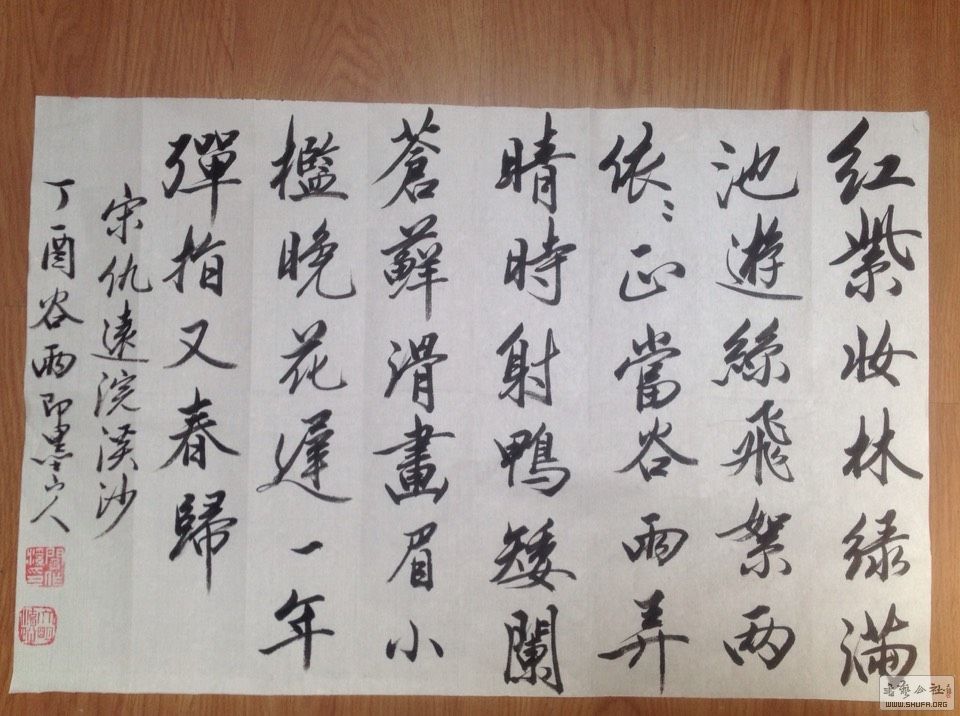 红紫妆林绿满
池遊絲飛絮两
依〻正當谷雨弄
晴時射鴨矮闌
蒼蘚滑畫眉小
檻晚花遲一年
彈指又春歸
宋仇遠浣溪沙
丁酉谷雨即墨山人
书艺公社
WWW.SHUFA.ORG